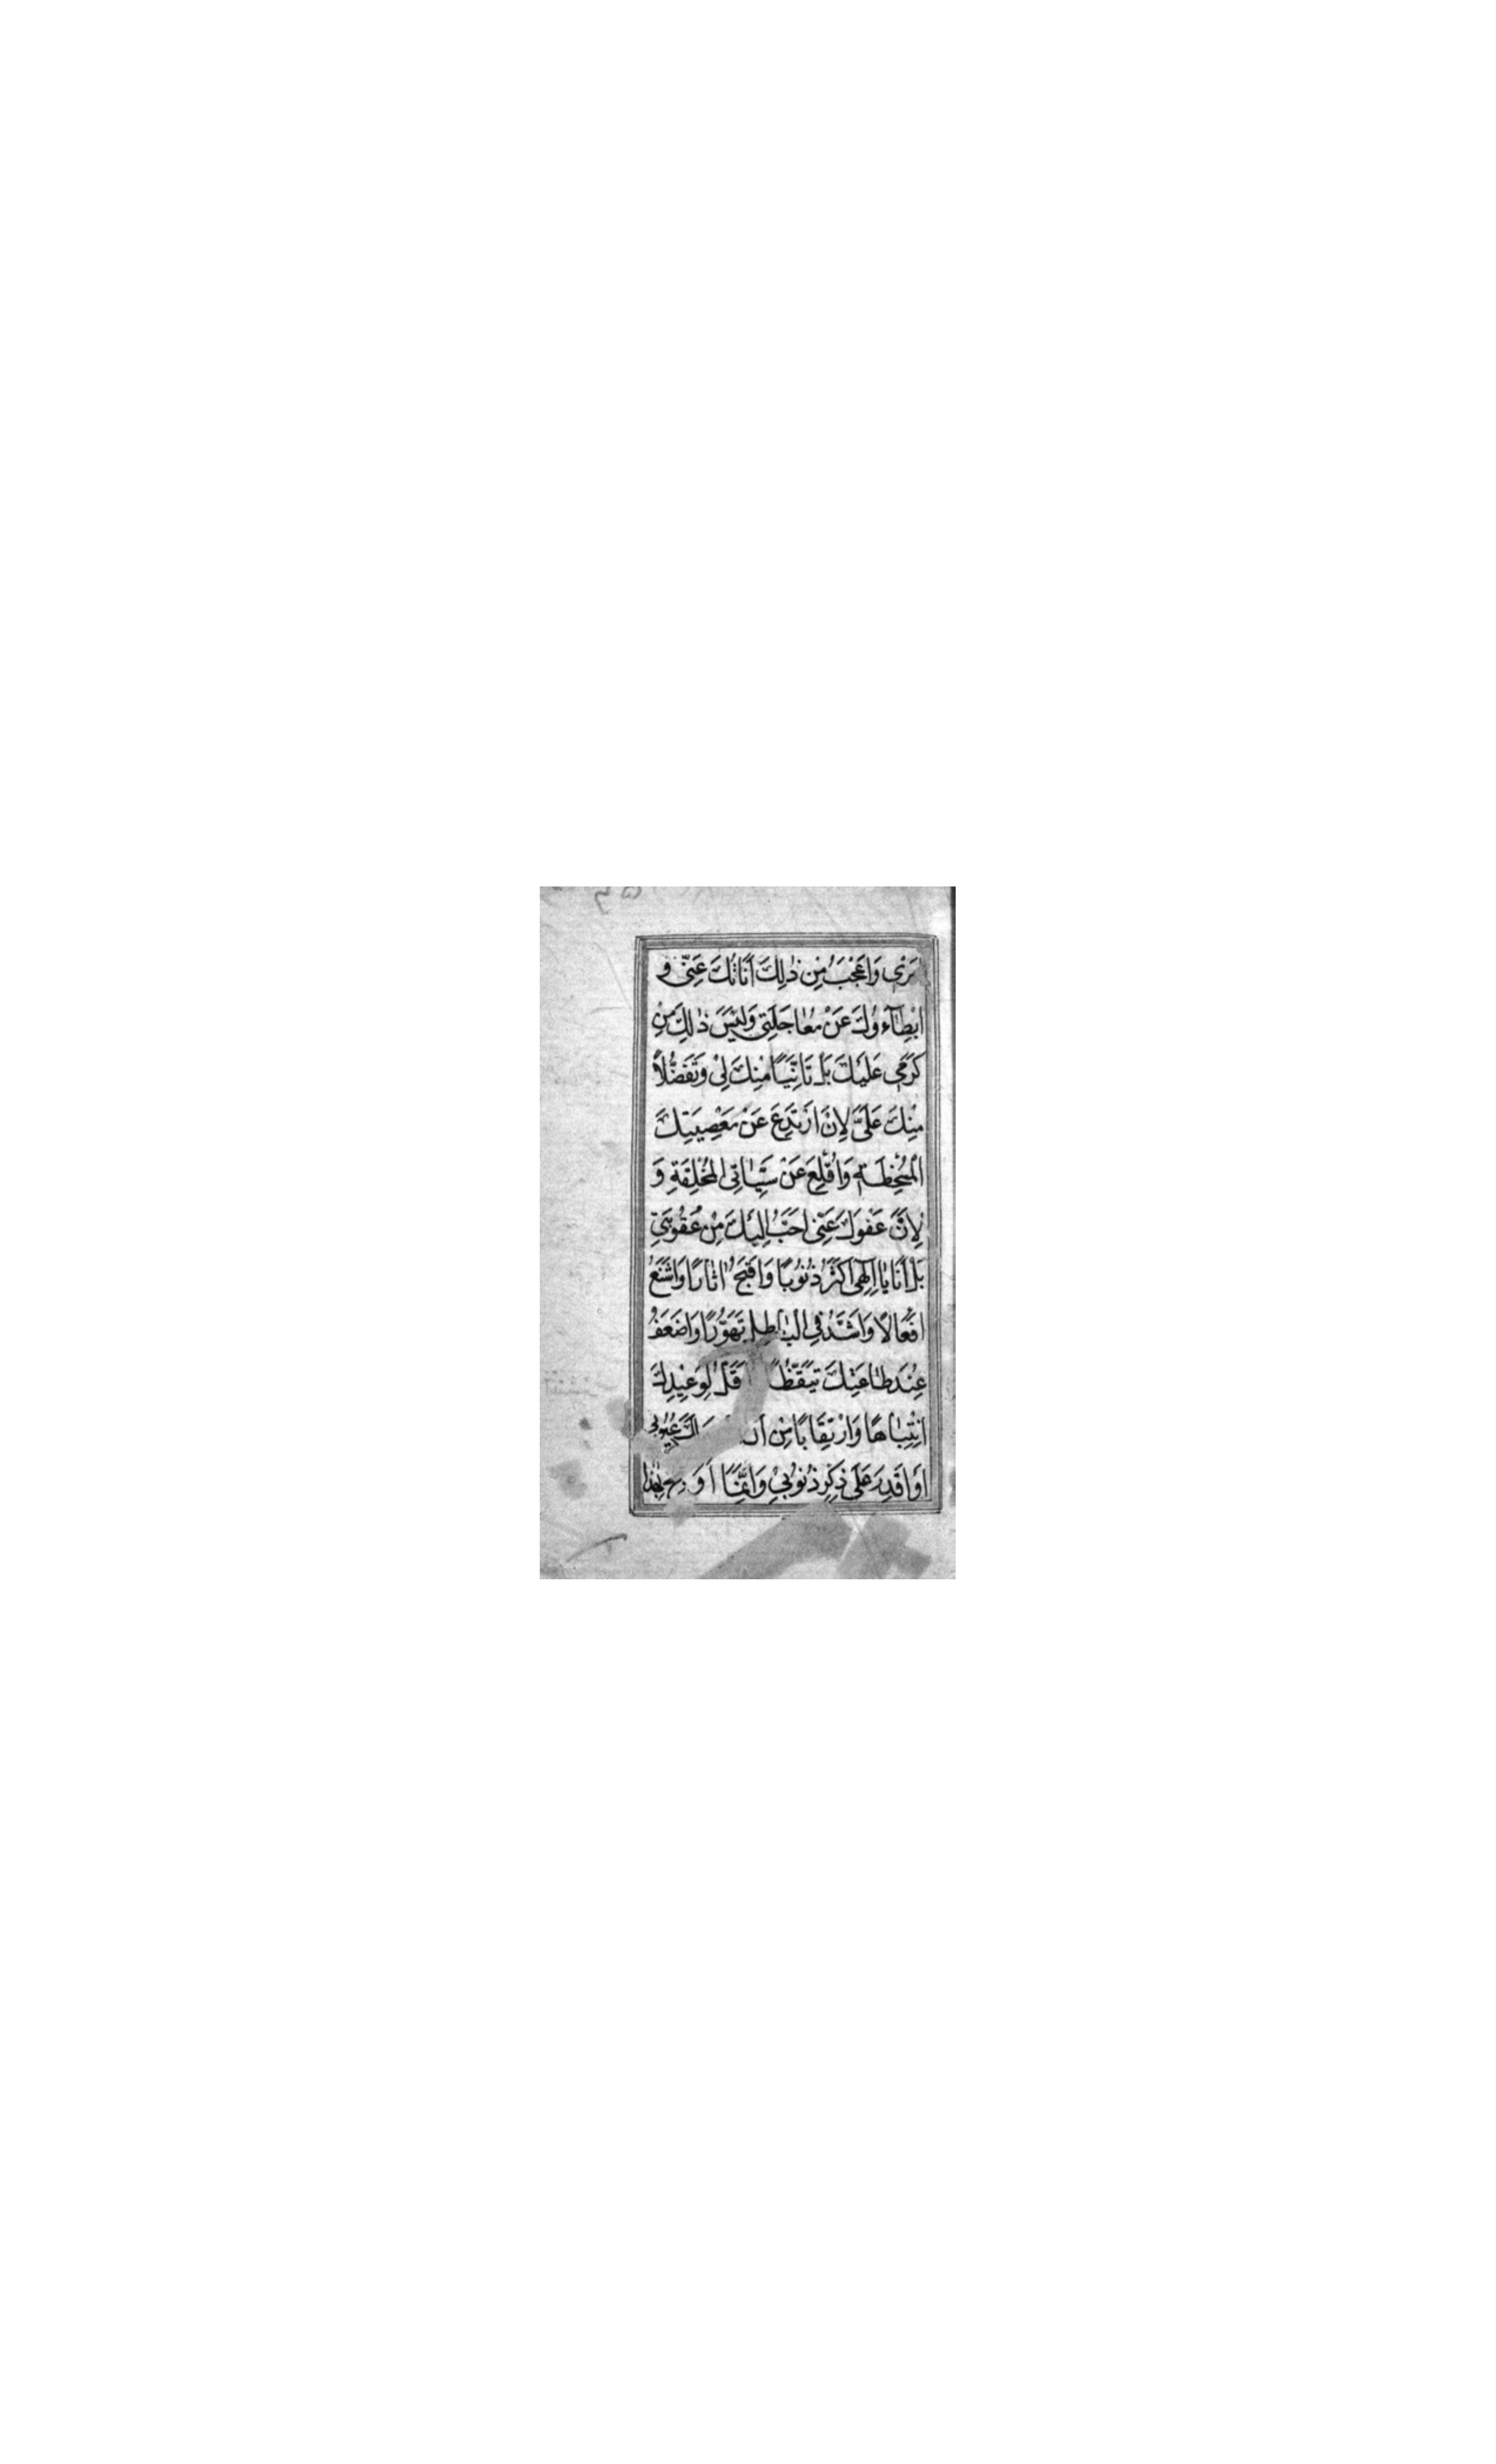 اَمْرِي وَاَعْجَبُ مِنْ ذٰلِكَ اَنَاتُكَ عَنّى وَ
اِبْطَآءُكَ عَنْ مُعَاجَلَتِي وَلَيْسَ ذٰلِكَ مِنْ
كَرَمِي عَلَيْكَ بَلْ تَاَنِّيًا مِنْكَ لِيْ وَتَفَضُّلًا
مِنْكَ عَلَيَّ لِاَنْ اَرْتَدِعَ عَنْ مَعْصِيَتِكَ
الْمُسْخِطَةِ وَاُقْلِعَ عَنْ سَيِّئَاتِي الْمُخْلِقَةِ وَ
لِاَنَّ عَفْوَكَ عَنِّى اَحَبُّ اِلَيْكَ مِنْ عُقُوبَتِي
بَلْ اَنَا يَا اِلٰهِى اَكْثَرُ ذُنُوْبًا وَاَقْبَحُ اٰثَارًا وَاَشْنَعُ
اَفْعَالًا وَاَشَدُّ فِي الْبَاطِلِ تَهَوُّرًا وَاَضْعَفُ
عِنْدَ طَاعَتِكَ تَيَقُّظًا اَقَلُّ لِوَعِيْدِكَ
اِنْتِبَاهًا وَارْتِقَابًا مِنْ لَكَ عُيُوْبِى
اَوْ اَقْدِرَ عَلَى ذِكْرِ ذُنُوْبِيْ وَاِنَّمَا اُوَبِّخُ بِهٰذَا